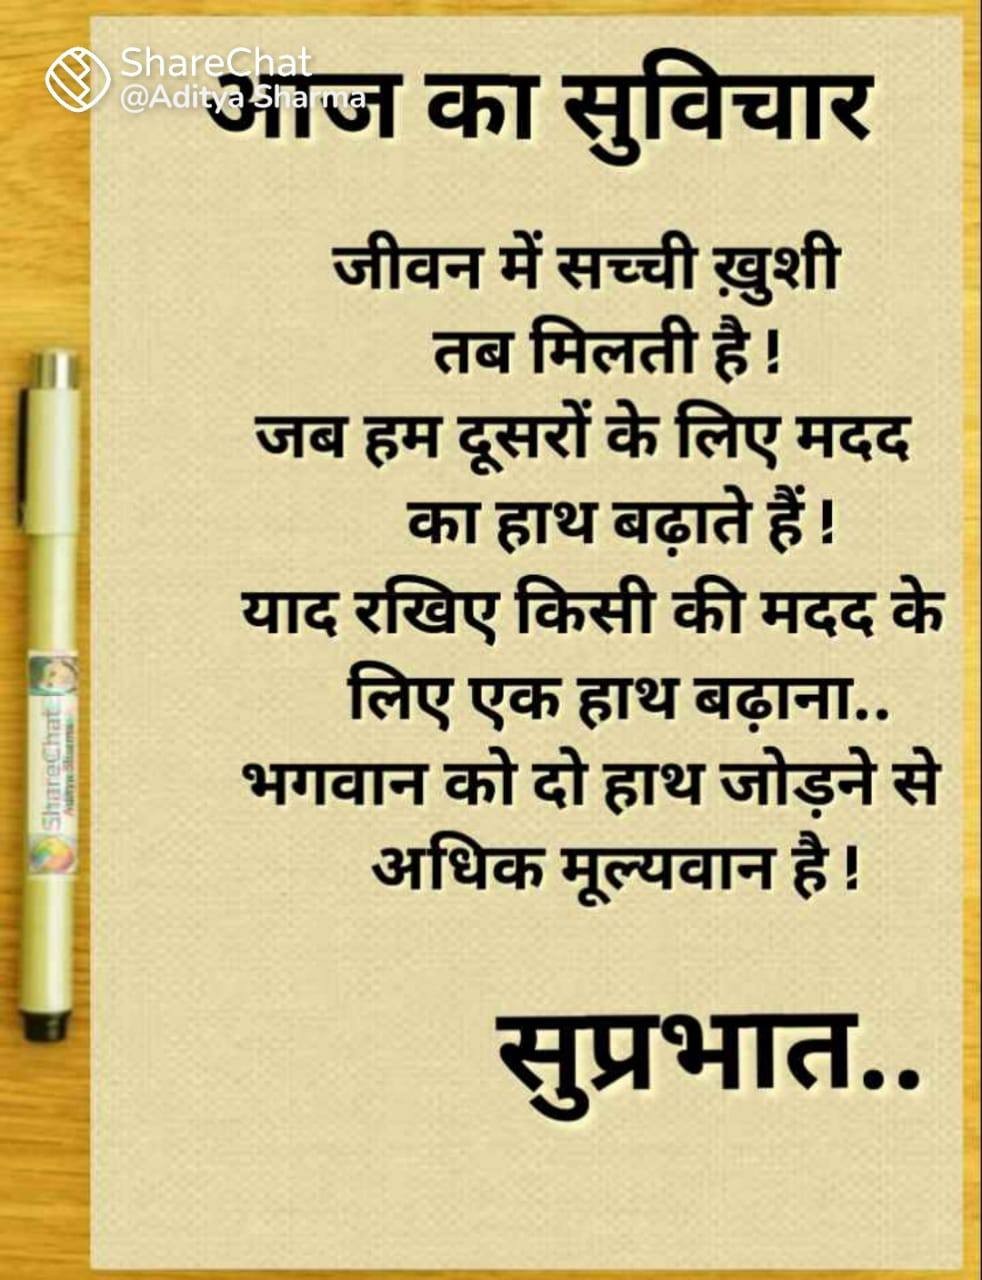 ShareChat
@Aditya Sharma
आज का सुविचार
जीवन में सच्ची ख़ुशी
तब मिलती है !
जब हम दूसरों के लिए मदद
का हाथ बढ़ाते हैं !
याद रखिए किसी की मदद के
लिए एक हाथ बढ़ाना..
भगवान को दो हाथ जोड़ने से
अधिक मूल्यवान है !
सुप्रभात..
ShareChat